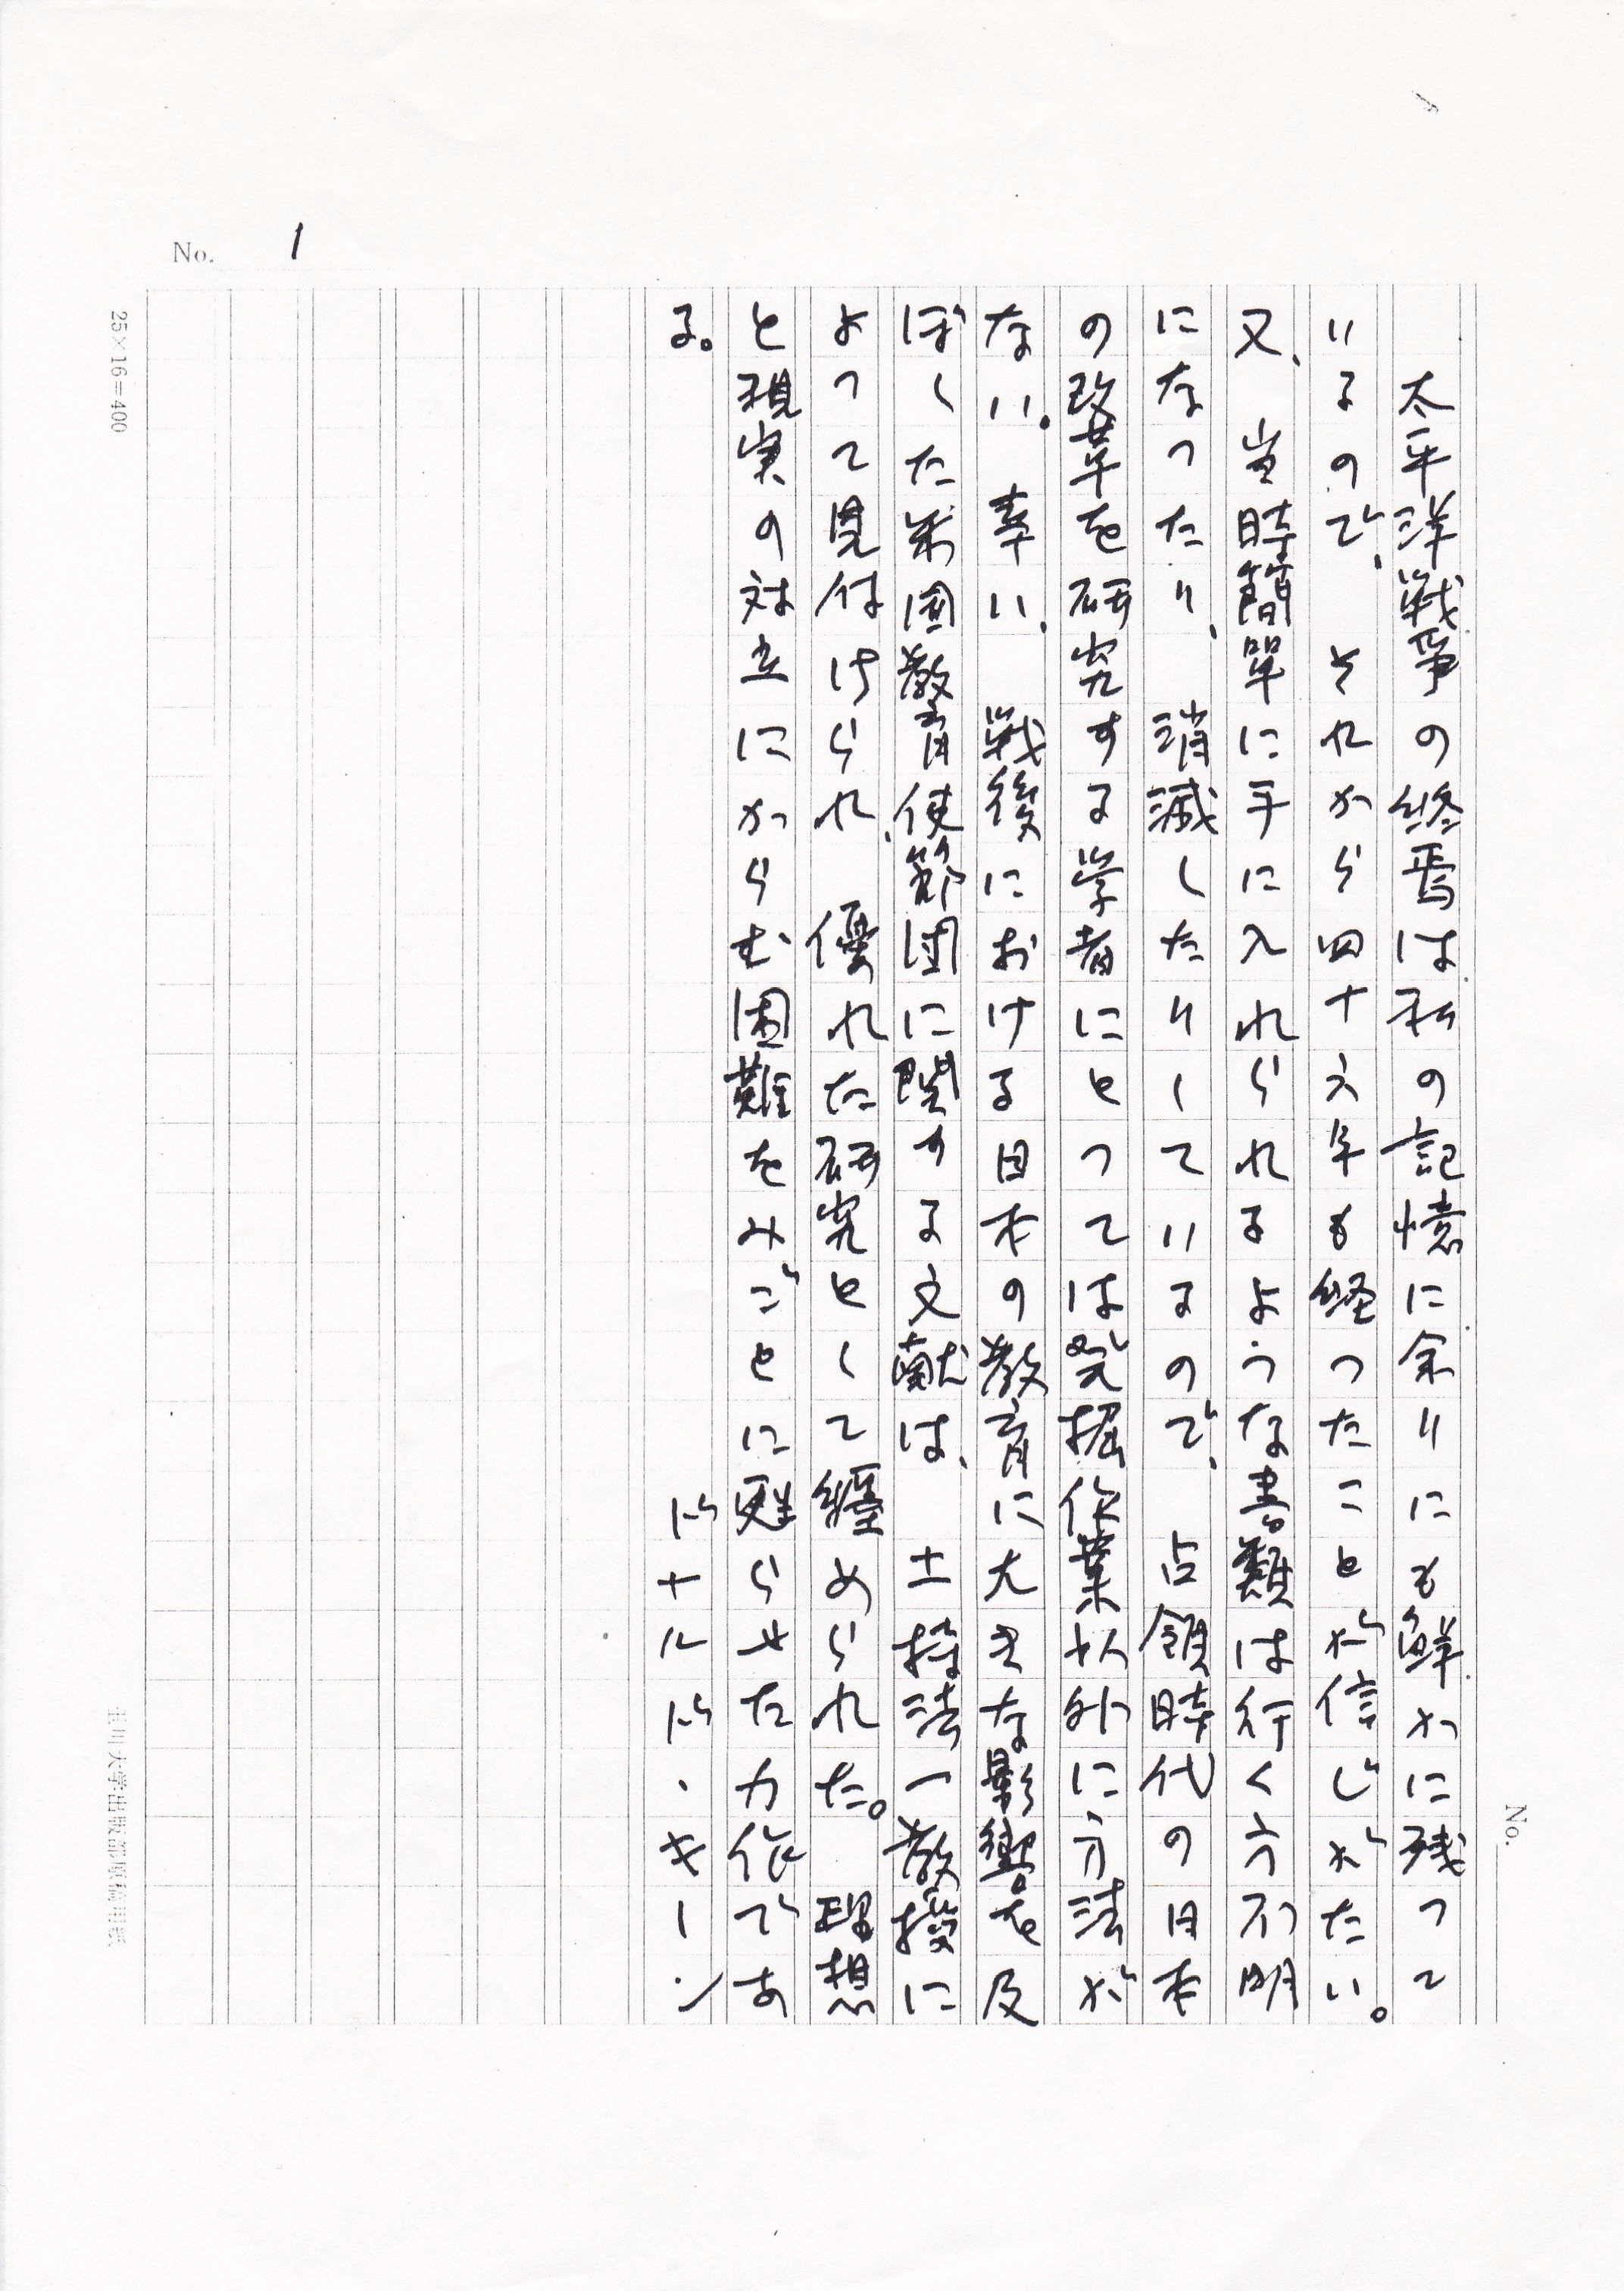 No.
太平洋戦争の終焉は私の記憶に余りにも鮮かに残って
いるので、それから四十六年も経ったことが信じがたい。
又、当時簡単に手に入れられるような書類は行く方不明
になったり、消滅したりしているので、占領時代の日本
の改革を研究する学者にとっては発掘作業以外に方法が
ない。幸い、戦後における日本の教育に大きな影響を及
ぼした米国教育使節団に関する文献は、土持法一教授に
よって見付けられ、優れた研究として纏められた。理想
と現実の対立にからむ困難をみごとに甦らせた力作であ
る。
ドナルド・キーン
No. 1
25×16=400
玉川大学出版部原稿用紙